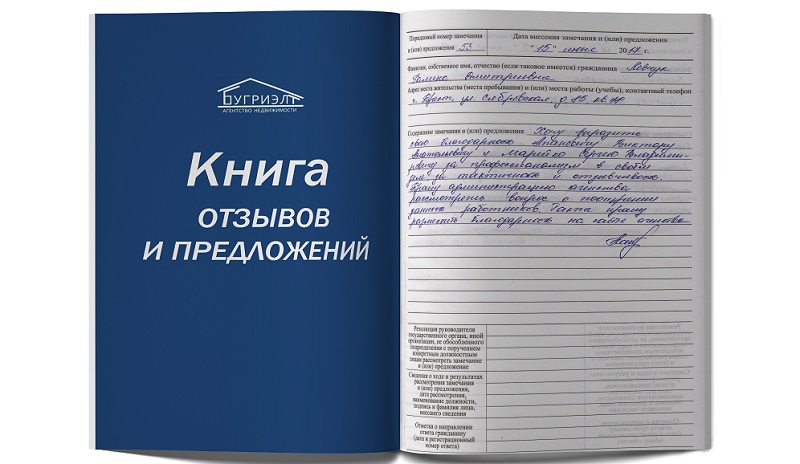 БУГРИЭЛТ
АГЕНТСТВО НЕДВИЖИМОСТИ
Книга
ОТЗЫВОВ
И ПРЕДЛОЖЕНИЙ
Порядковый номер замечания
и (или) предложения 53
Дата внесения замечания и (или) предложения
"15" июня 2017 г.
Фамилия, собственное имя, отчество (если таковое имеется) гражданина Левчук
Галина Дмитриевна
Адрес места жительства (места пребывания) и (или) места работы (учебы), контактный телефон
г. Брест, ул. д 85 кв
Содержание замечания и (или) предложения Хочу выразить
свою благодарность Апановичу Виктору
Анатольевичу и Марийко Юрию Владими-
ровичу за профессионализм в своём
деле за тактичность и отзывчивость.
Прошу администрацию агенства
рассмотреть вопрос о поощрении
данных работников. Также прошу
разместить благодарность на сайте агенства.
Резолюция руководителя
государственного органа, иной
организации, ее обособленного
подразделения с поручением
конкретным должностным
лицам рассмотреть замечание
и (или) предложение
Сведения о ходе и результатах
рассмотрения замечания
и (или) предложения,
дата рассмотрения,
наименование должности,
подпись и фамилия лица,
внесшего сведения
Отметка о направлении
ответа гражданину
(дата и регистрационный
номер ответа)